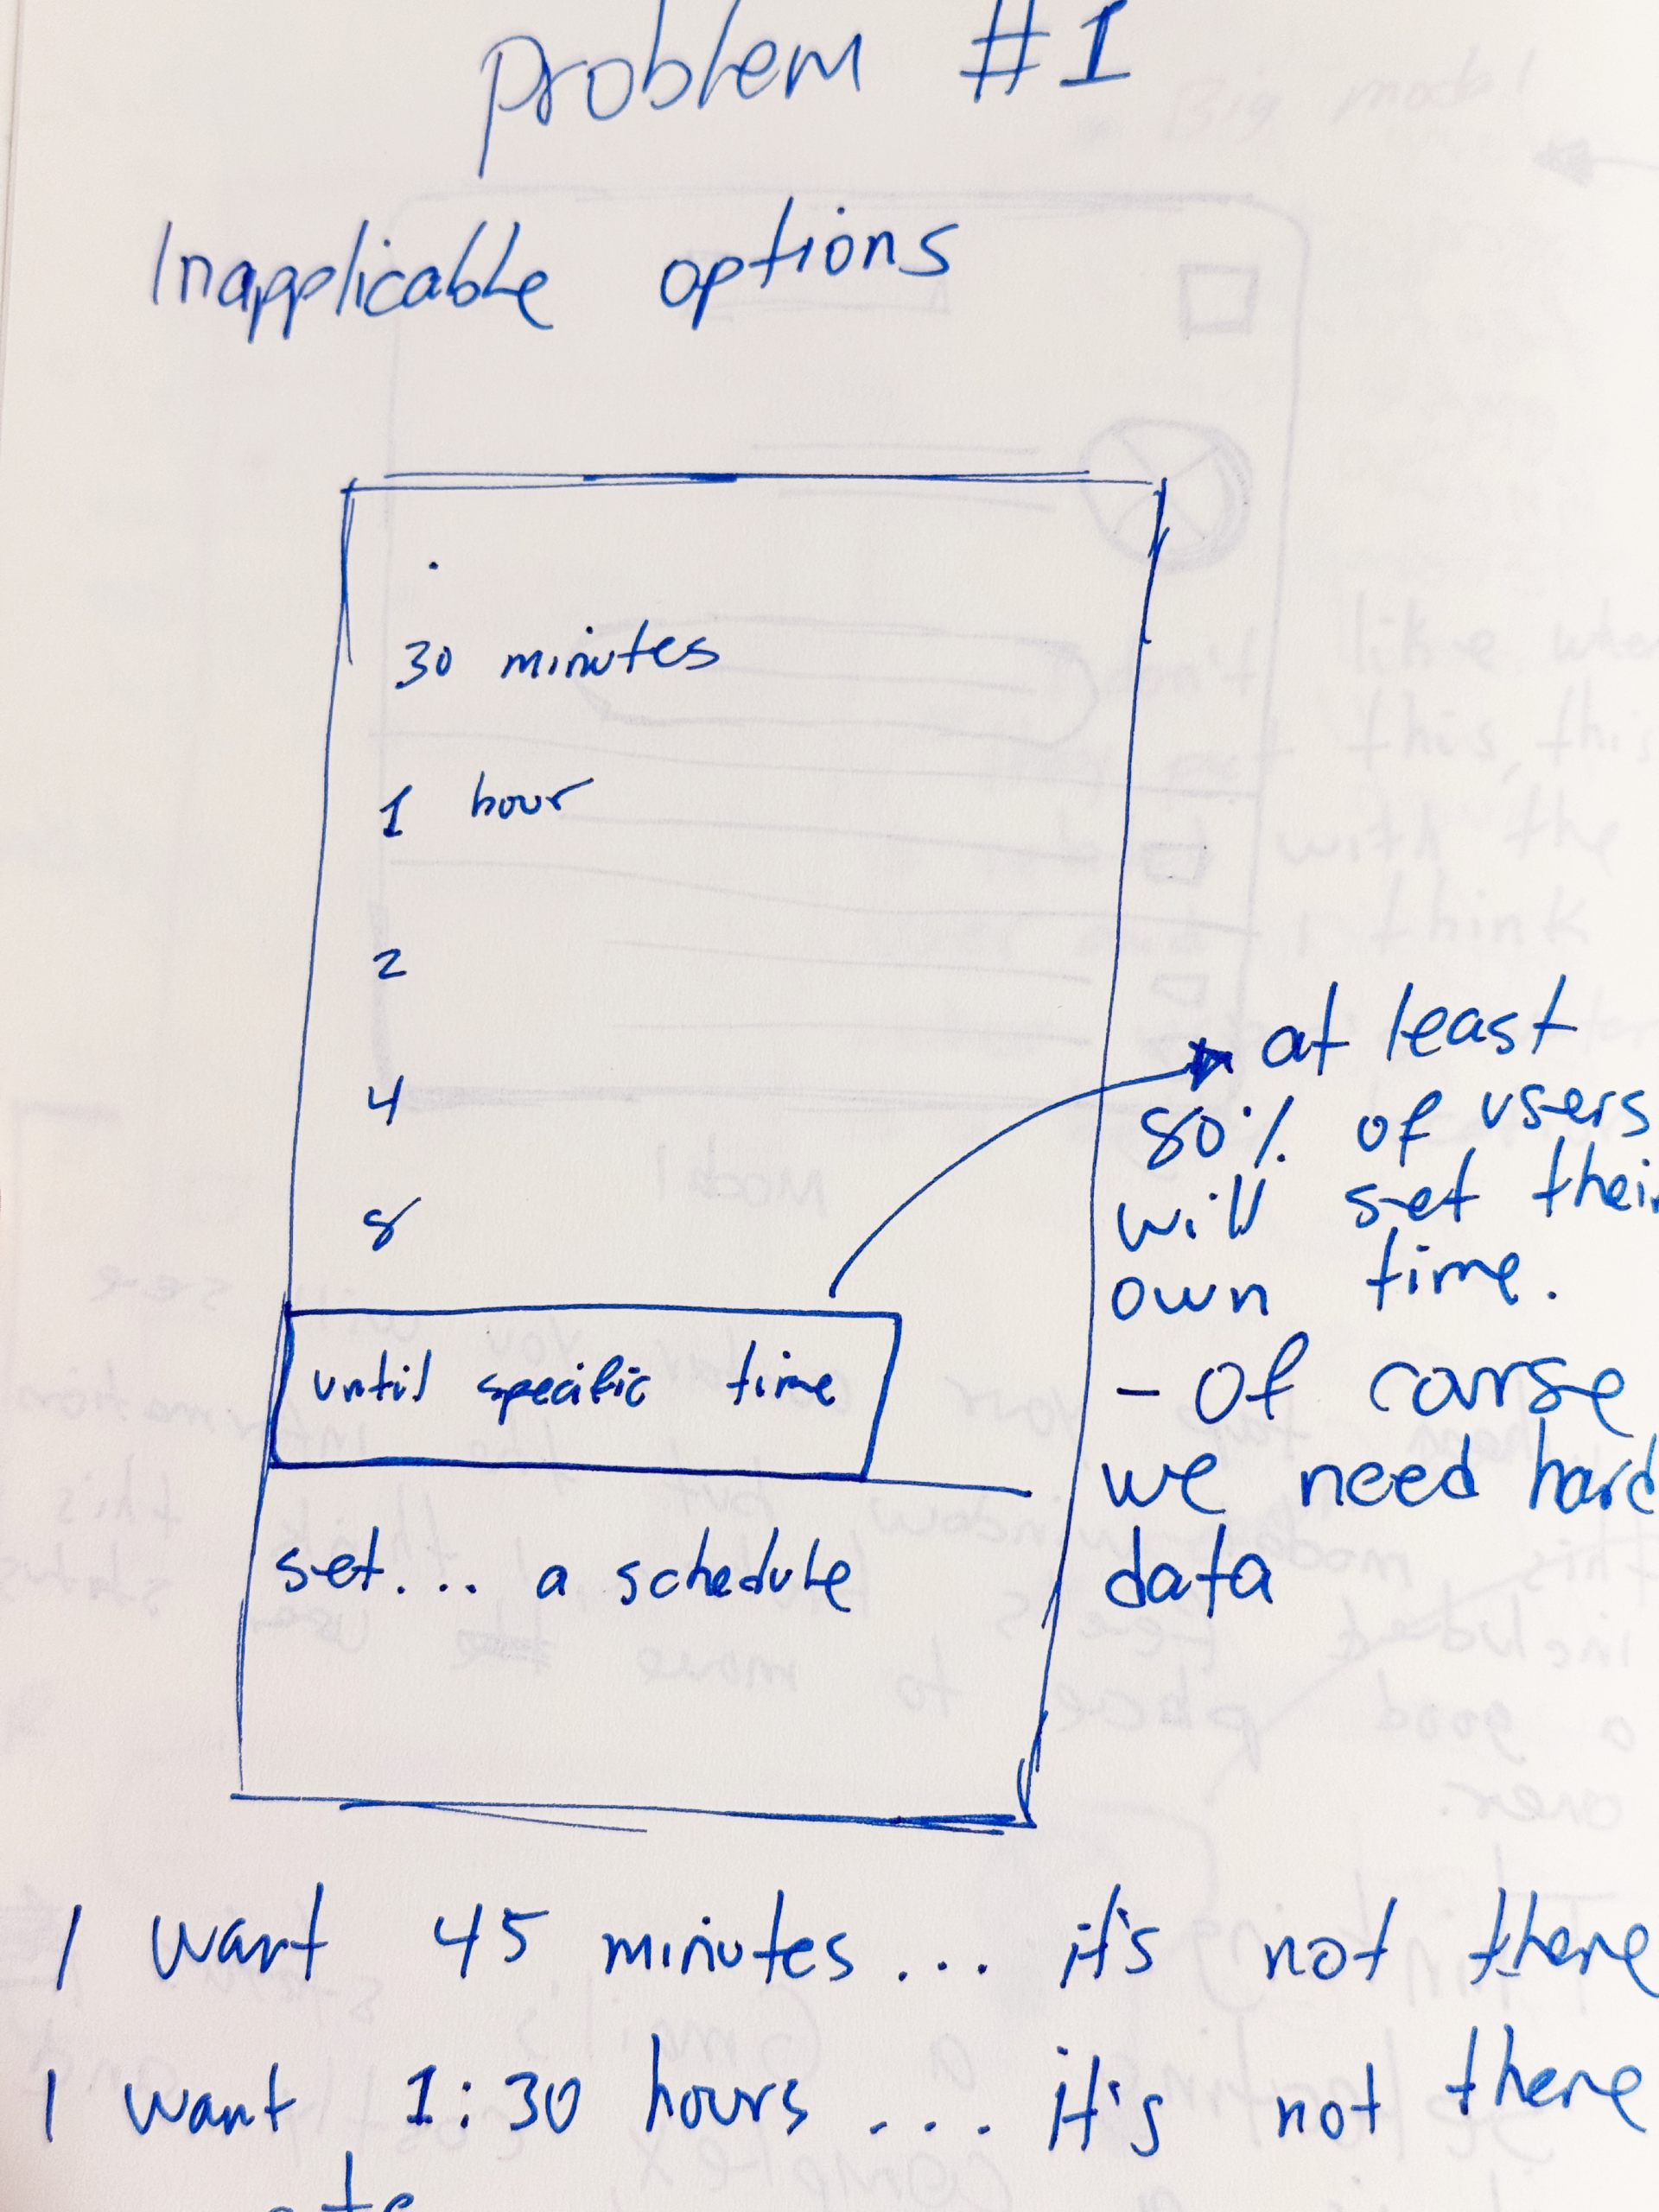 Problem #1
Inapplicable options
.
30 minutes
1 hour
2
4
8
until specific time
set... a schedule
at least
80% of users
will set their
own time.
- Of carse
we need hard
data
I want 45 minutes... it's not there
I want 1:30 hours ... it's not there